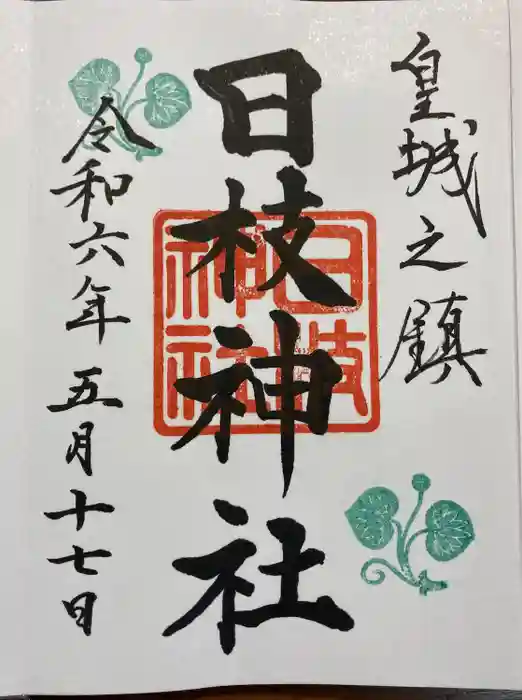 皇城之鎮
日枝神社
日枝神社
令和六年五月十七日